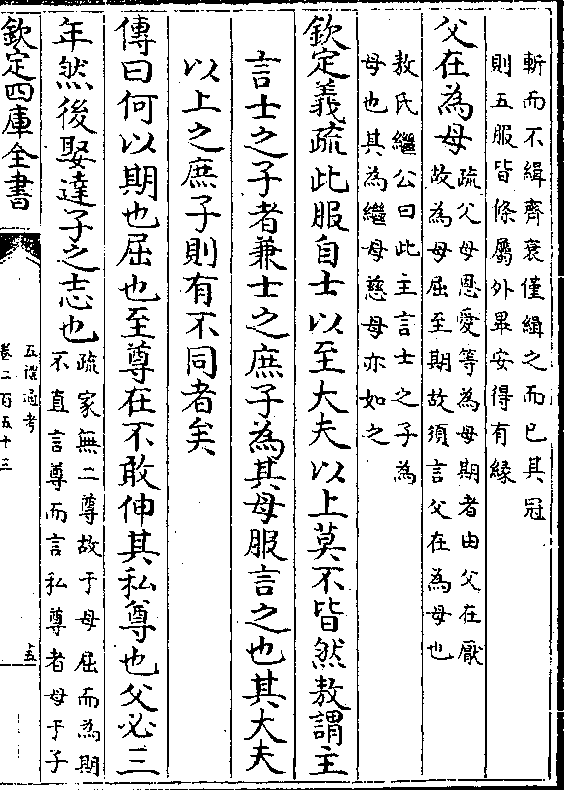 斬而不緝齊衰僅緝之而已其冠
則五服皆條屬外畢安得有緣
父在為母疏父母恩愛等為母期者由父在厭
故為母屈至期故須言父在為母也
敖氏繼公曰此主言士之子為
母也其為繼母慈母亦如之
欽定義疏此服自士以至大夫以上莫不皆然敖謂主
言士之子者兼士之庶子為其母服言之也其大夫
以上之庶子則有不同者矣
傳曰何以期也屈也至尊在不敢伸其私尊也父必三
年然後娶達子之志也疏家無二尊故于母屈而為期
不直言尊而言私尊者母于子
欽定四庫全書
五禮通考
卷二百五十三
十五